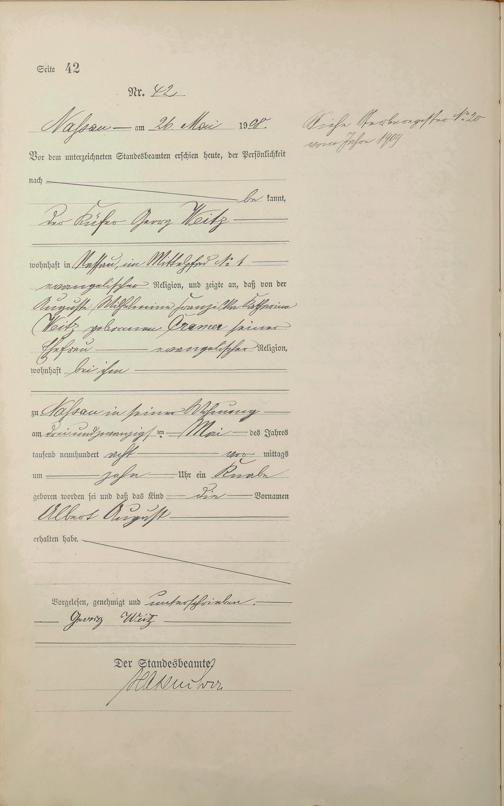 Seite 42
Nr. 42
Nassau am 26 Mai 1908.
Siehe Sterberegister No 20
vom Jahre 1909
Vor dem unterzeichneten Standesbeamten erschien heute, der Persönlichkeit
nach
be kannt,
der Küfer Georg Weitz
wohnhaft in Nassau, im Mittelpfad No 1
evangelischer Religion, und zeigte an, daß von der
Auguste Wilhelmine Franziska Katharina
Weitz geborenen Cramer seiner
Ehefrau evangelischer Religion,
wohnhaft bei ihm
zu Nassau in seiner Wohnung
am dreiundzwanzigsten Mai des Jahres
tausend neunhundert acht vor mittags
um zehn Uhr ein Knabe
geboren worden sei und daß das Kind die Vornamen
Albert August
erhalten habe.
Vorgelesen, genehmigt und unterschrieben.
Georg Weitz
Der Standesbeamte